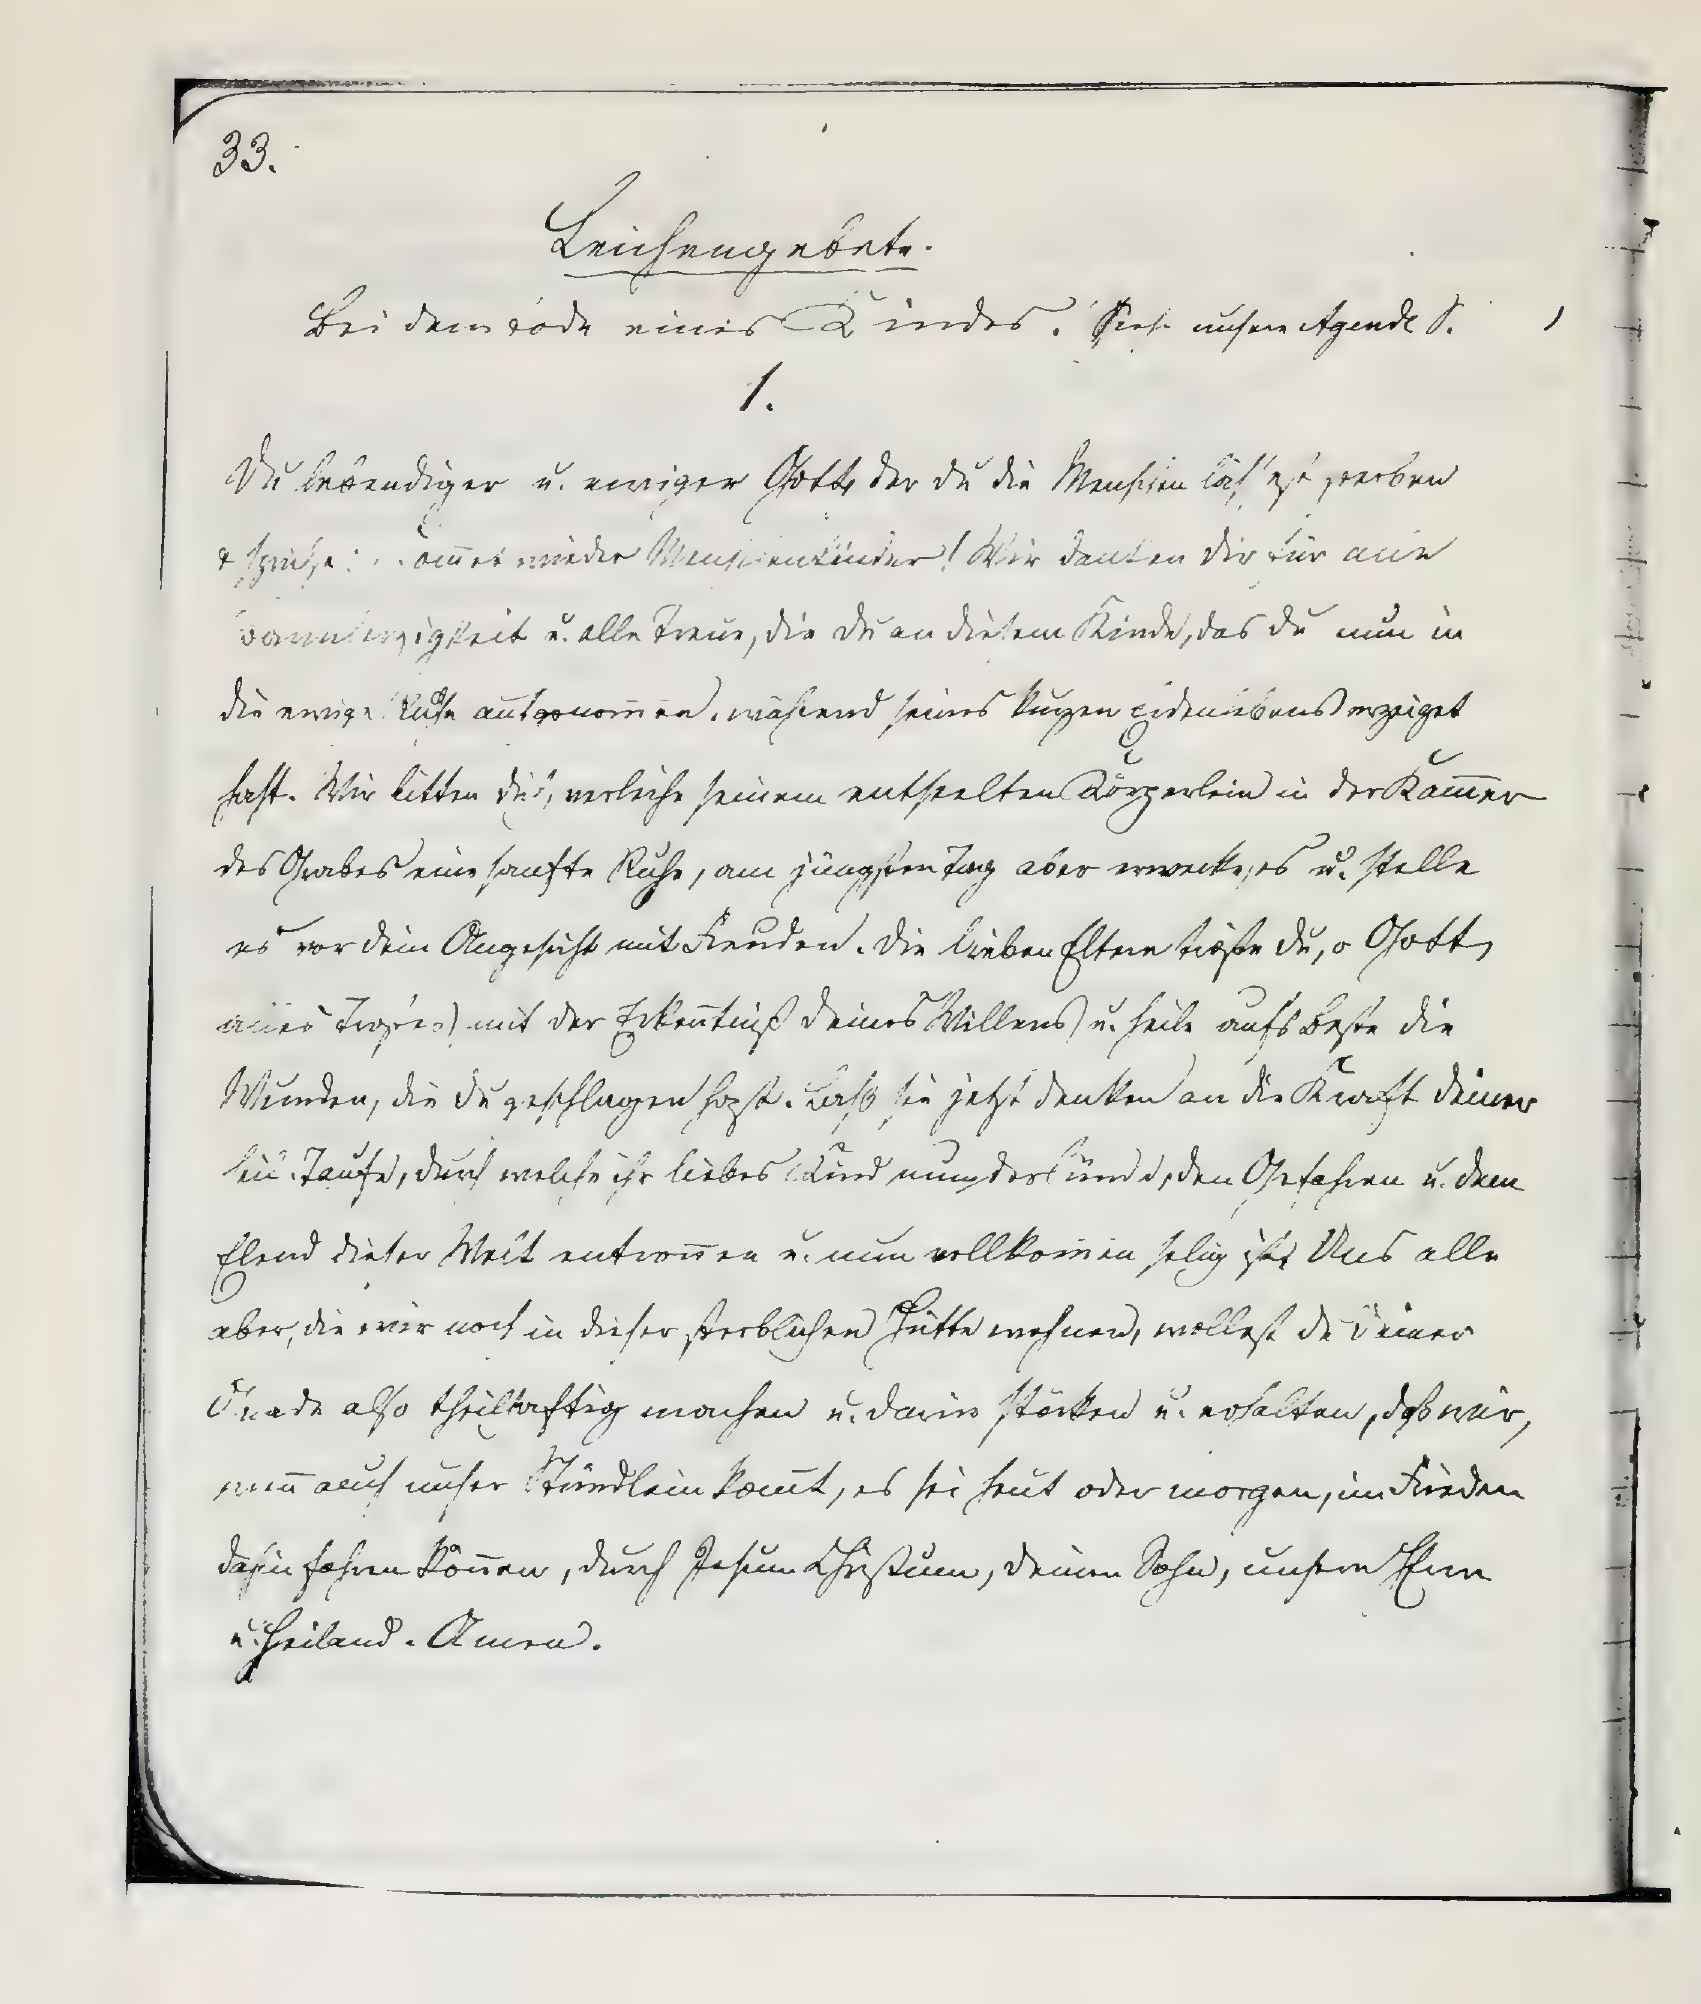 33.
Leichengebete.
Bei dem Tode eines Kindes. Siehe unsere Agende S.
1.
Du lebendiger u. ewiger Gott, der du die Menschen lässest sterben
u. sprichst: Kom̄et wieder Menschenkinder! Wir danken dir für alle
Barmherzigkeit u. alle Treue, die du an diesem Kinde, das du nun in
die ewige Ruhe aufgenom̄en, während seines kurzen Erdenlebens erzeiget
hast. Wir bitten dich, verleihe seinem entseelten Körperlein in der Kam̄er
des Grabes eine sanfte Ruhe, am jüngsten Tag aber erwecke es u. stelle
es vor dein Angesicht mit Freuden. Die lieben Eltern tröste du, o Gott,
alles Trostes) mit der Erken̄tniß deines Willens u. heile aufs Beste die
Wunden, die du geschlagen hast. Laß sie jetzt denken an die Kraft deiner
heil. Taufe, durch welche ihr liebes Kind nun der Sünde, den Gefahren u. dem
Elend dieser Welt entron̄en u. nun vollkom̄en selig ist. Uns alle
aber, die wir noch in dieser sterblichen Hütte wohnen, wollest du deiner
Gnade also theilhaftig machen u. darin stärken u. erhalten, daß wir,
wen̄ auch unser Stündlein kom̄t, es sei heut oder morgen, im Frieden
dahin fahren kön̄en, durch Jesum Christum, deinen Sohn, unsern Herrn
u. Heiland. Amen.